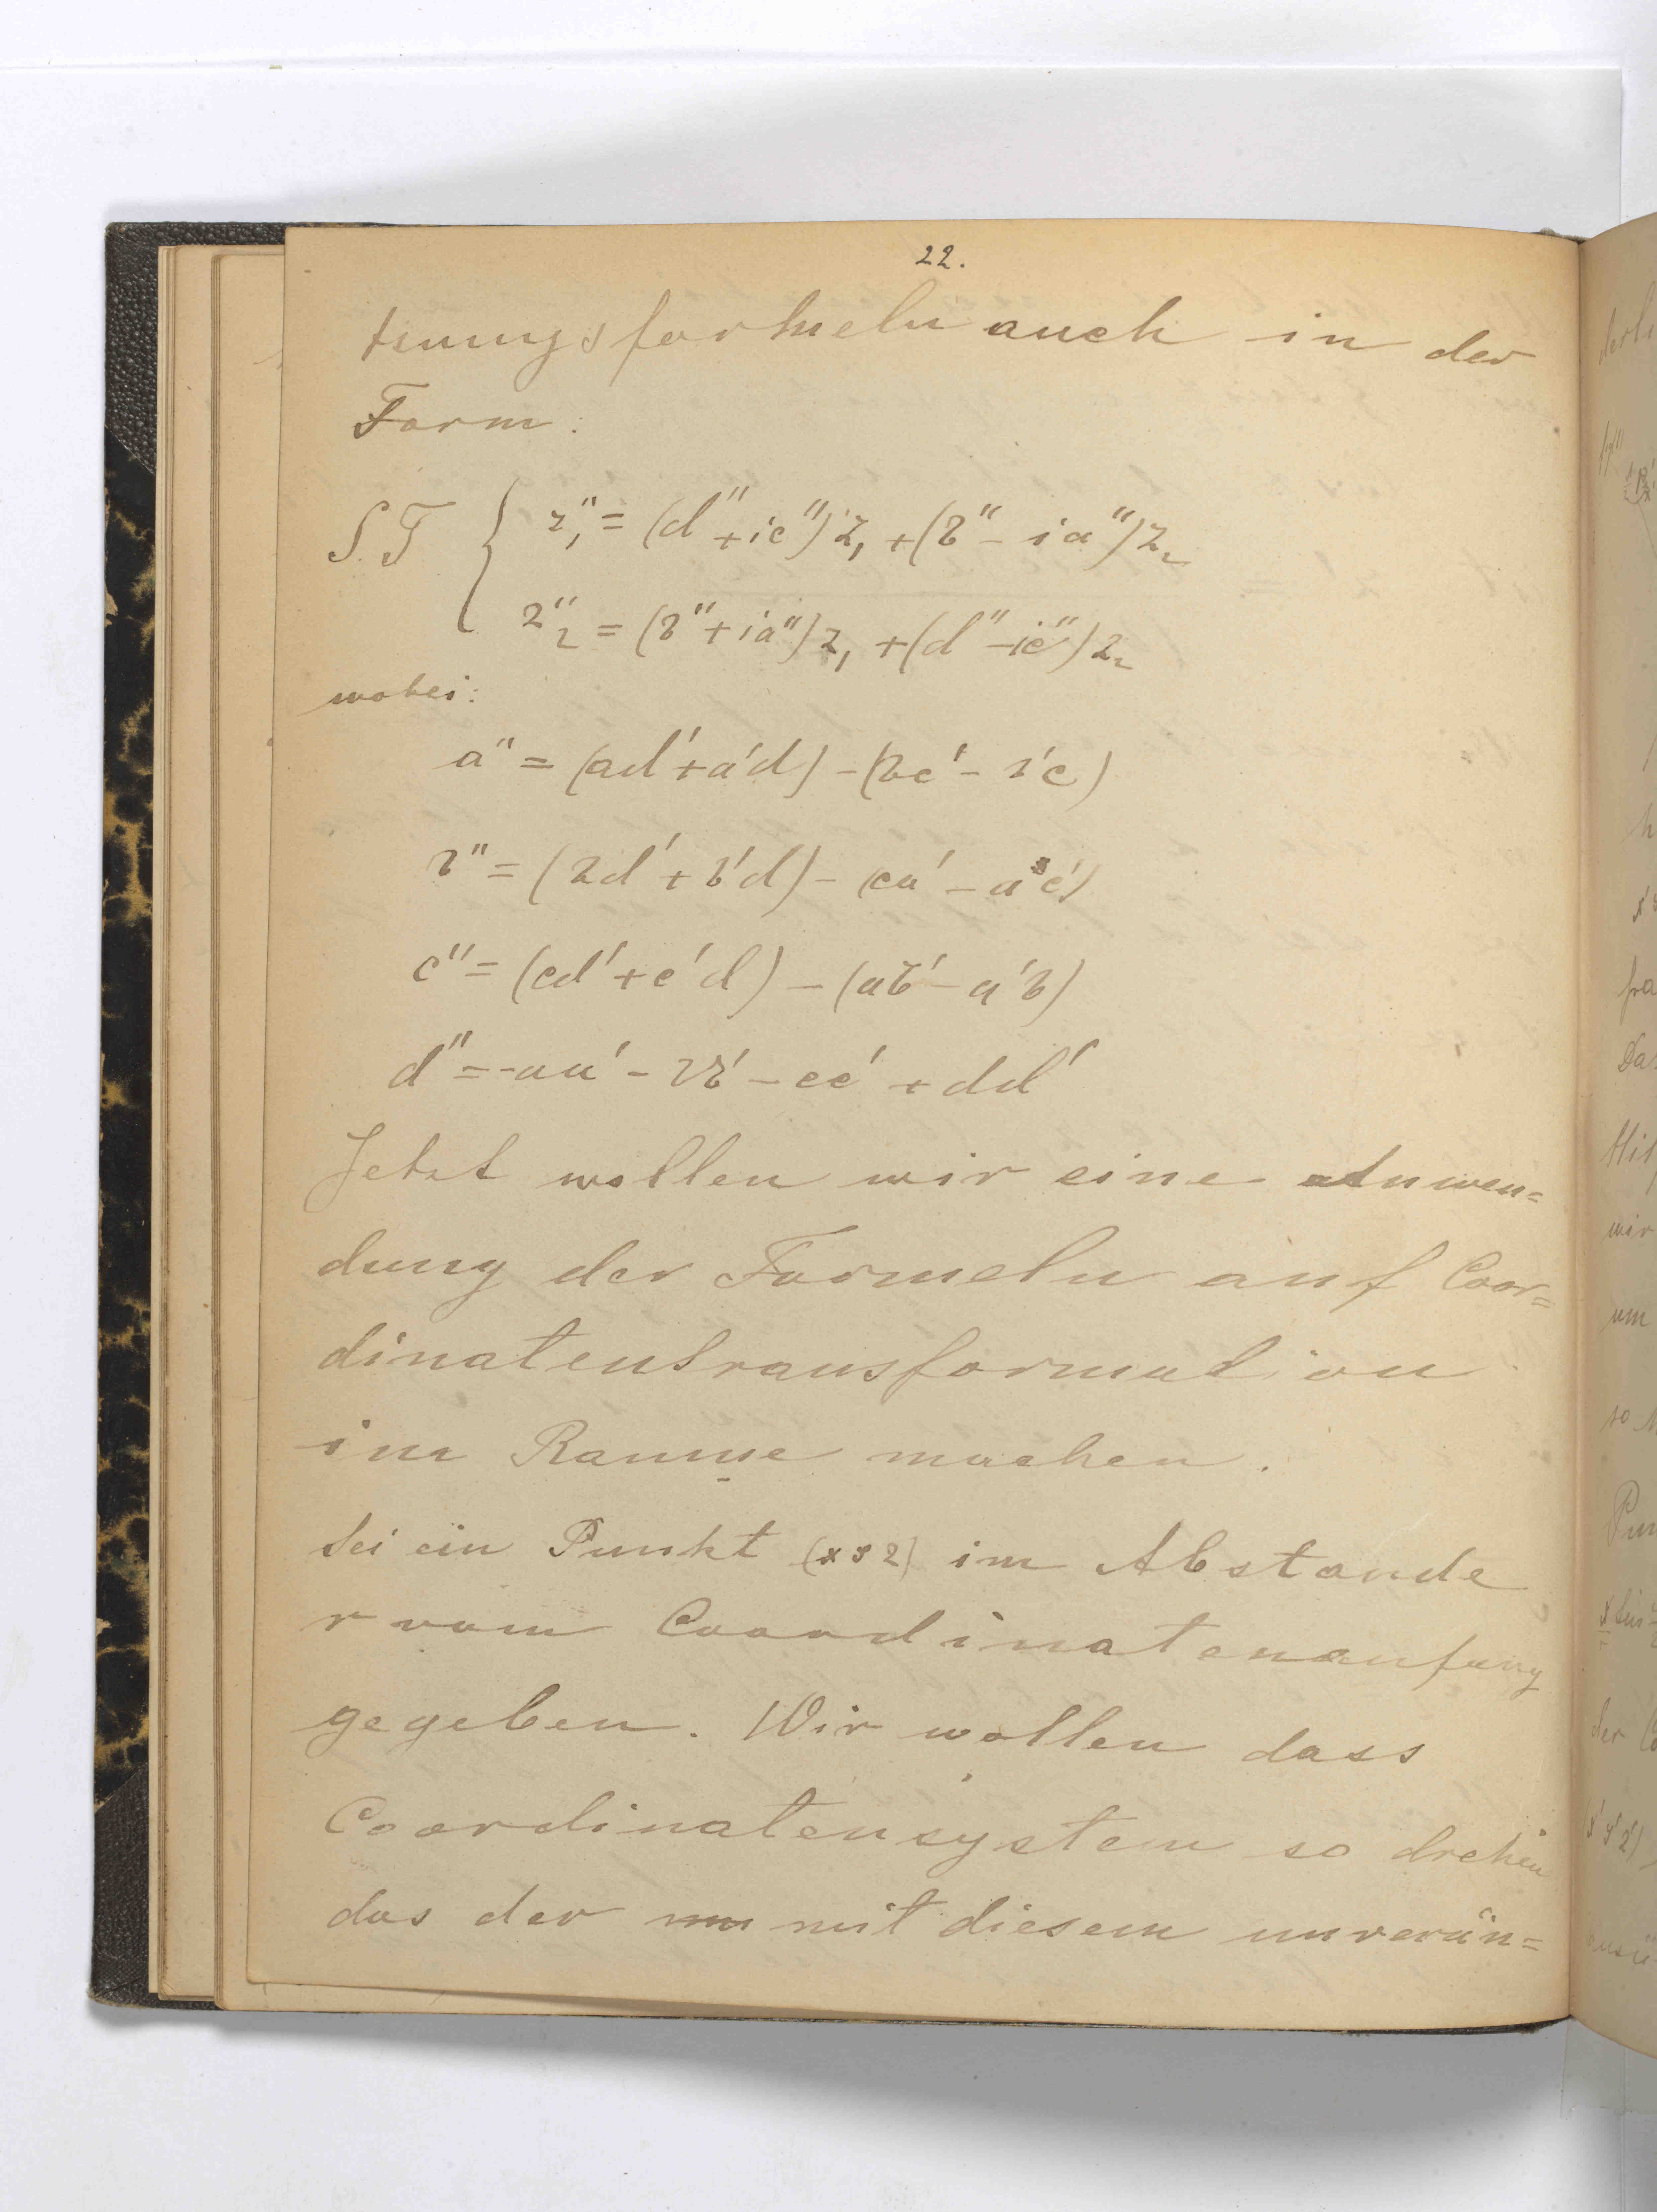 22.
tzungsformeln auch in der
Form:
S.T { z₁" = (d"+ic")z₁ + (b" - ia")z₂
z"₂ = (b"+ia")z₁ + (d"-ic")z₂
wobei:
a" = (ad'+a'd) - (bc' - b'c)
b" = (bd' + b'd) - (ca' - ac')
c" = (cd' + c'd) - (ab' - a'b)
d" = -aa' - bb' - cc' + dd'
Jetzt wollen wir eine Anwen=
dung der Formeln auf Coor=
dinatentransformation
im Raume machen.
Sei ein Punkt (x y z) im Abstande
r vom Coordinatenanfang
gegeben. Wir wollen dass
Coordinatensystem so drehen
das der mit diesem unverän=